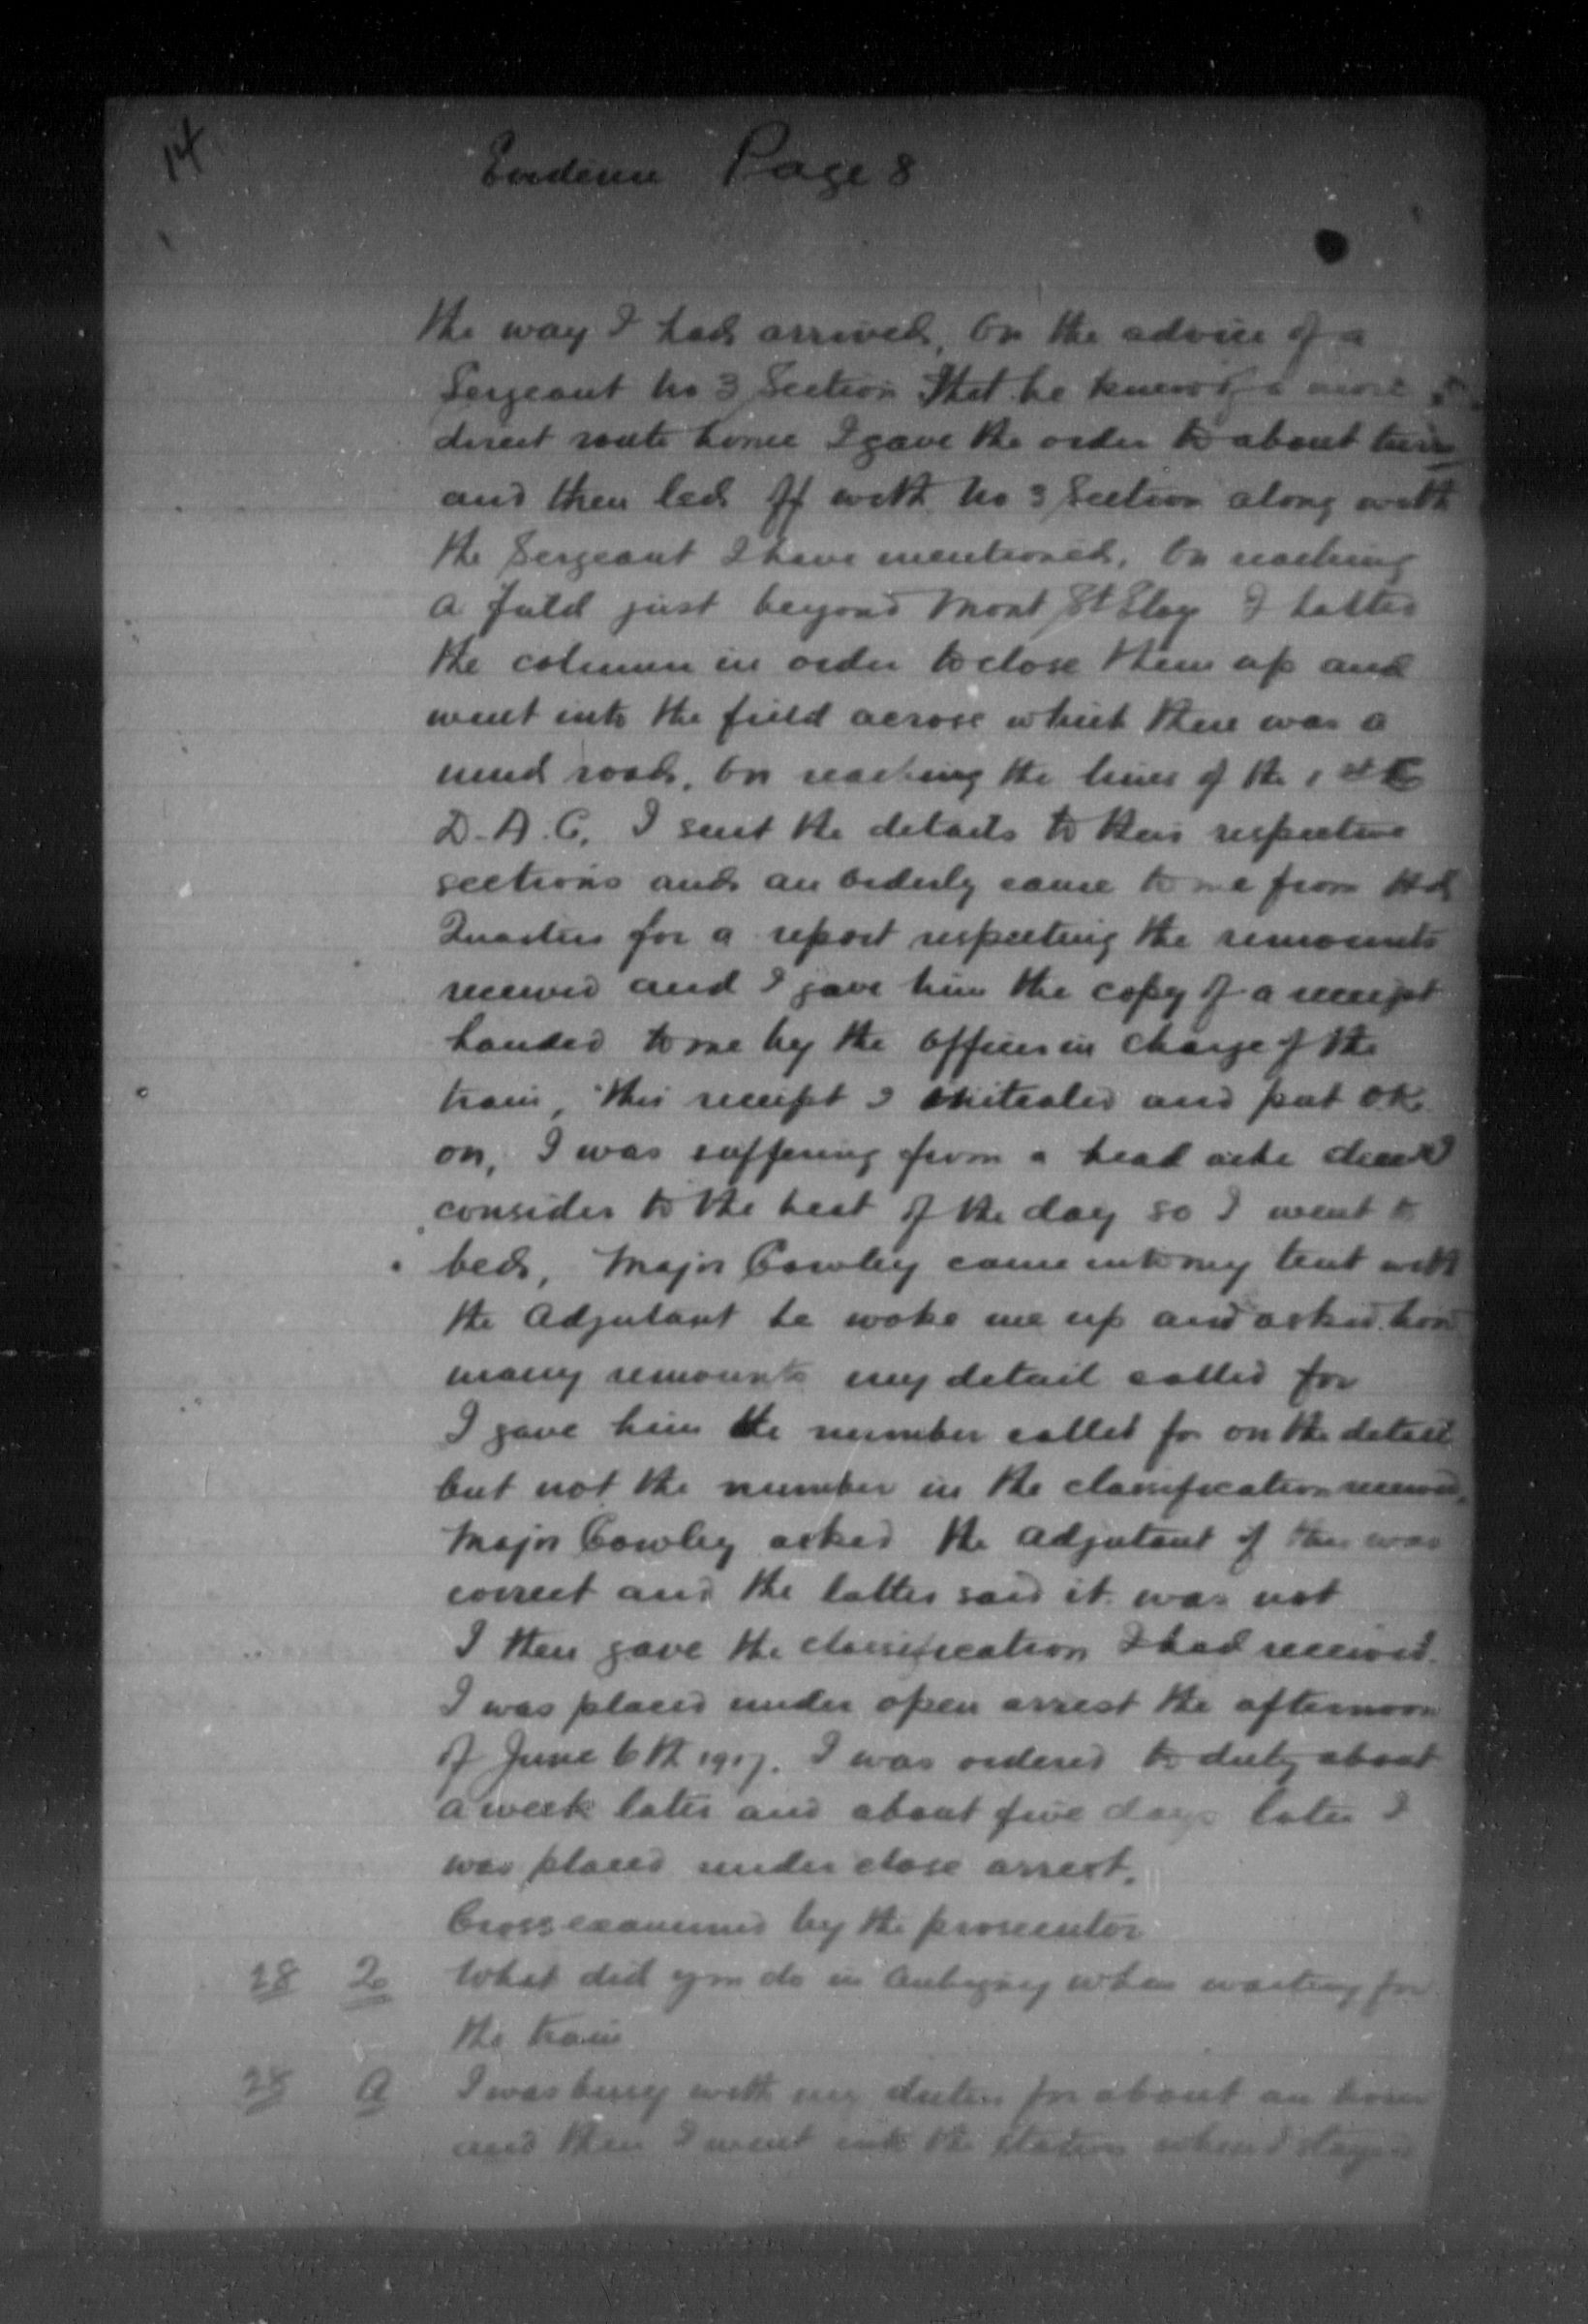 14
Evidence Page 8
the way I had arrived, On the advice of a
Sergeant No 3 Section that he knew of a more
direct route home I gave the order to about turn
and then led off with No 3 Section along with
the Sergeant I have mentioned, On reaching
a field just beyond Mont St Eloy I halted
the column in order to close them up and
went into the field across which there was a
mud road, On reaching the lines of the 1st
D.A.C. I sent the details to their respective
sections and an orderly came to me from Hd
Quarters for a report respecting the remounts
received and I gave him the copy of a receipt
handed to me by the officer in charge of the
train, this receipt I initialed and put O.K.
on, I was suffering from a head ache due I
consider to the heat of the day so I went to
bed, Major Cowley came into my tent with
the Adjutant he woke me up and asked how
many remounts my detail called for
I gave him the number called for on the detail
but not the number in the classification received,
Major Cowley asked the Adjutant if this was
correct and the latter said it was not
I then gave the classification I had received.
I was placed under open arrest the afternoon
of June 6th 1917. I was ordered to duty about
a week later and about five days later I
was placed under close arrest.
Cross examined by the prosecutor
28 Q What did you do in Aubigny when waiting for
the train
28 A I was busy with my duties for about an hour
and then I went into the station where I stayed